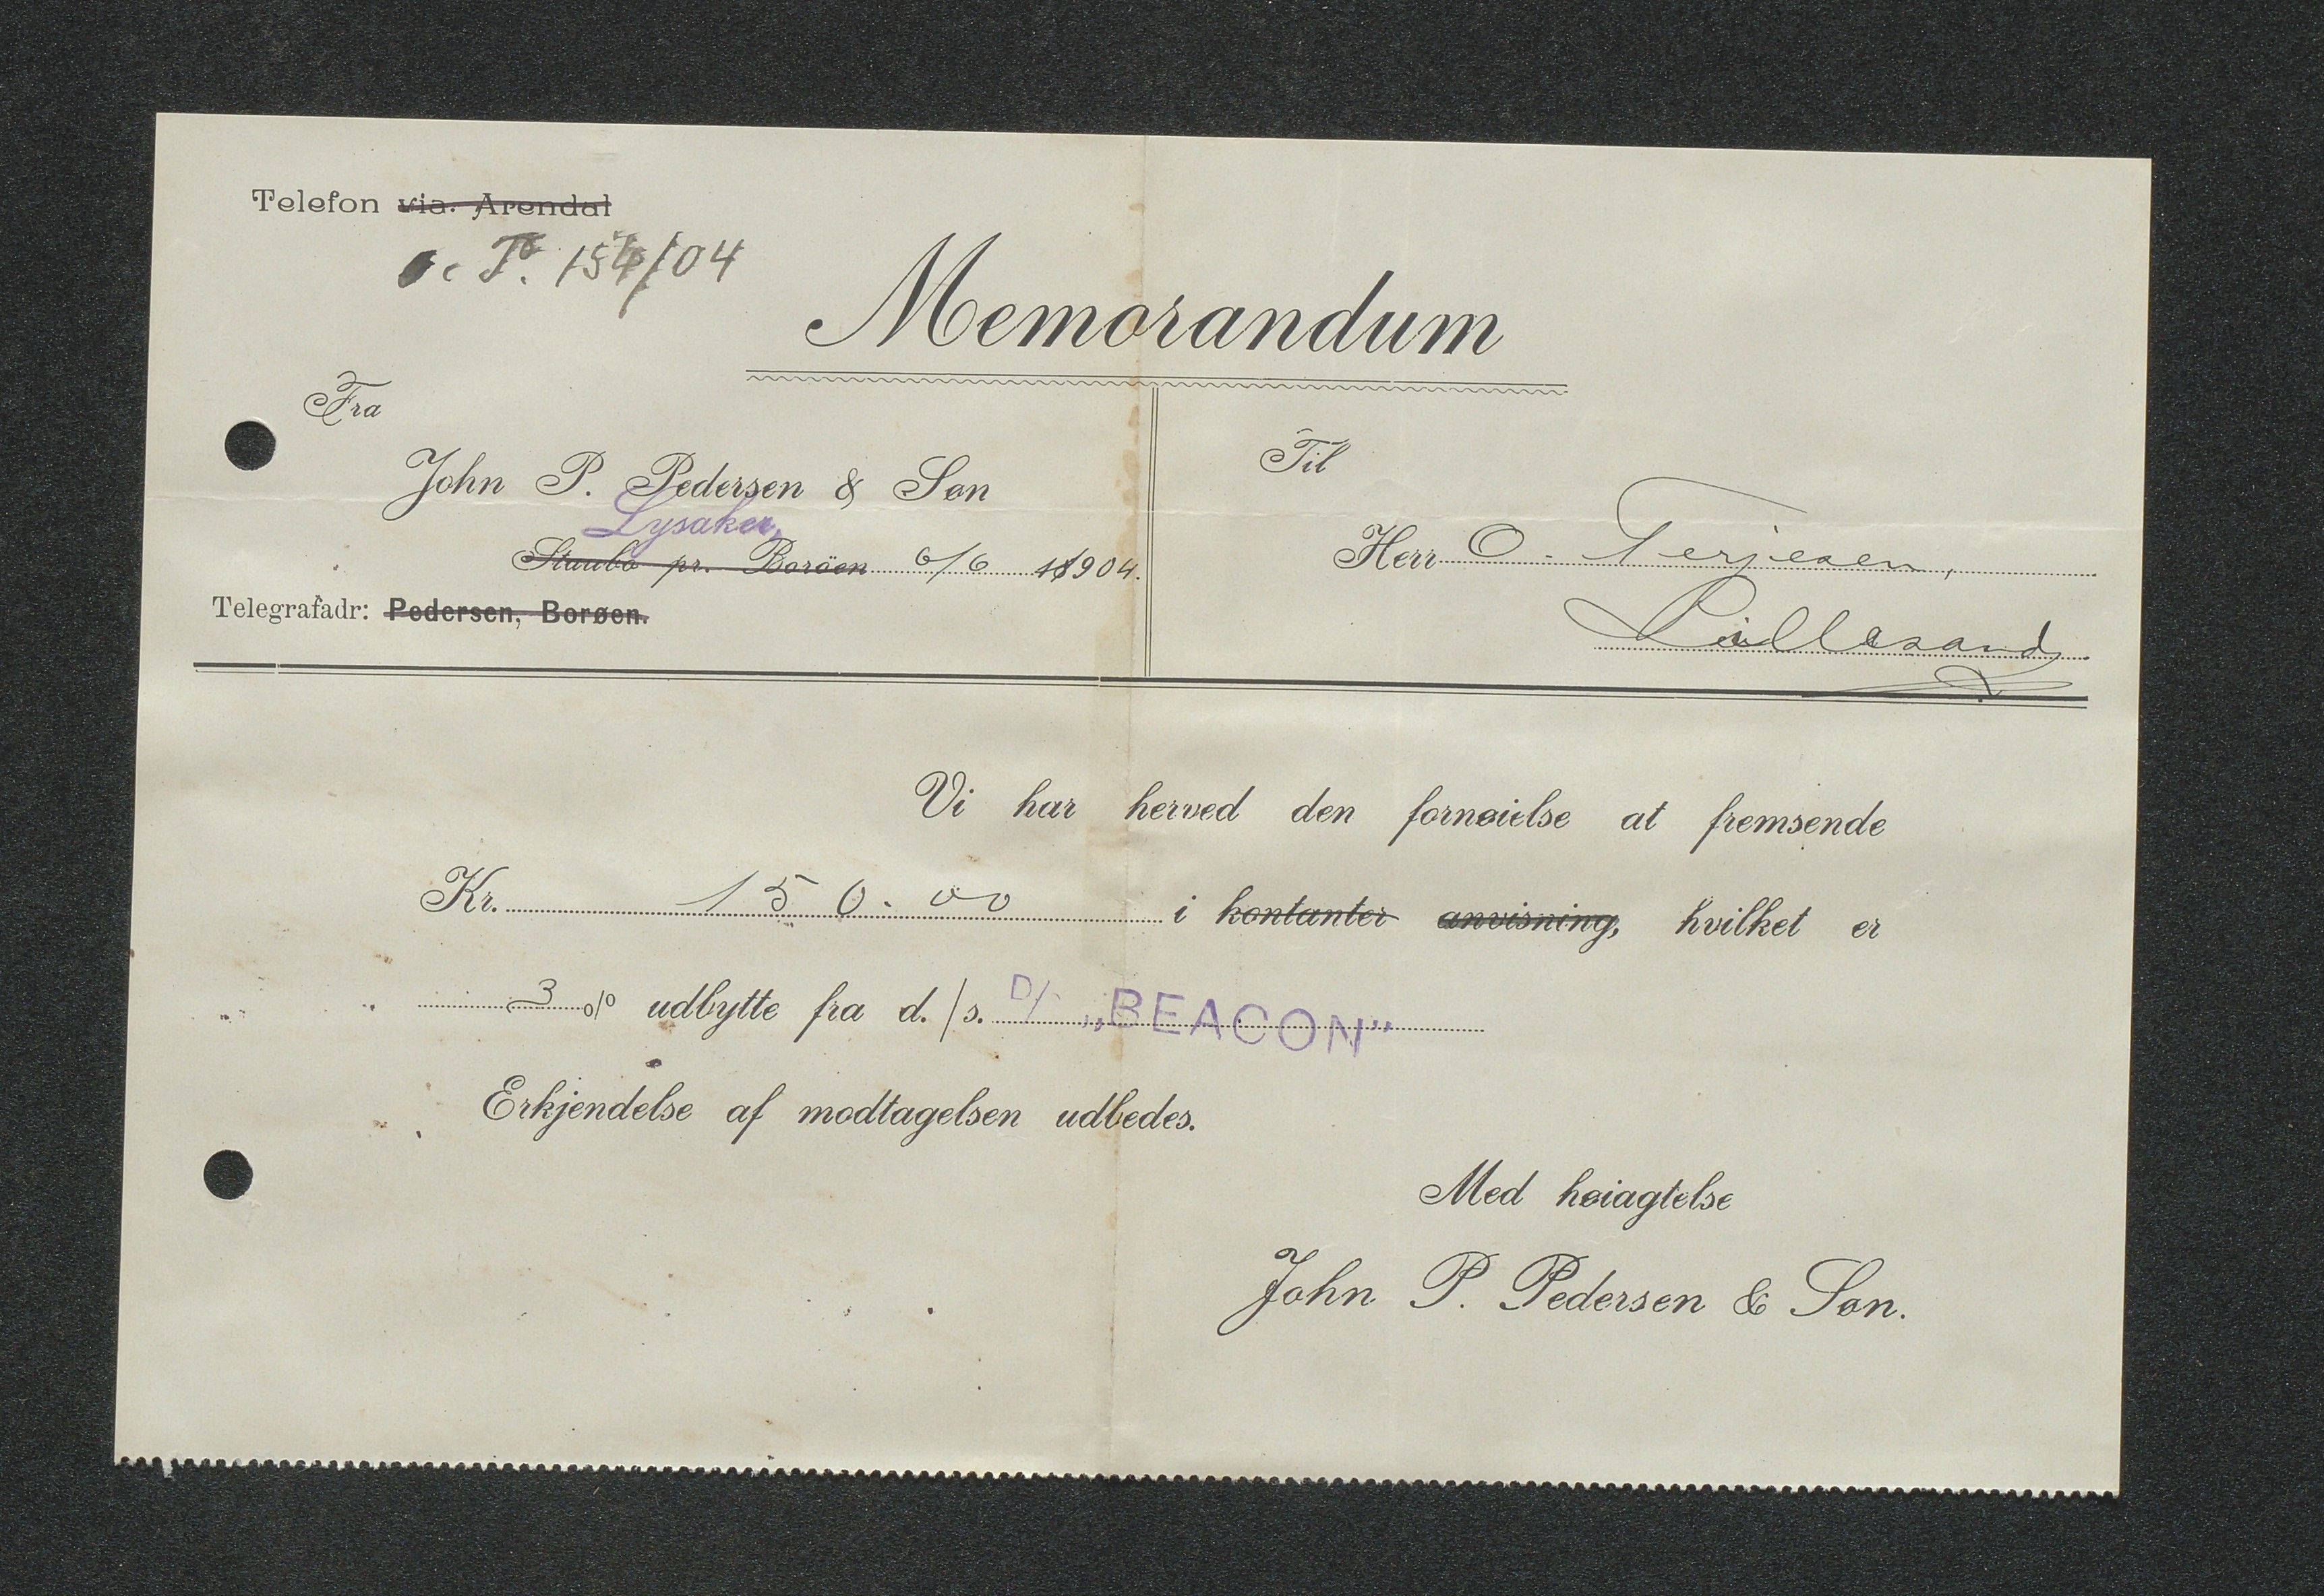 Telefon via. Arendal
o. T. 154/04
Memorandum
Fra
John P. Pedersen & Søn
Lysaker,
Staubø pr. Borøen 6/6 1904.
Telegrafadr: Pedersen, Borøen.
Til
Herr O. Terjesen,
Lillesand
Vi har herved den fornøielse at fremsende
Kr. 150.00 i kontanter anvisning, hvilket er
3 o/o udbytte fra d./s. D/S „BEACON”
Erkjendelse af modtagelsen udbedes.
Med høiagtelse
John P. Pedersen & Søn.